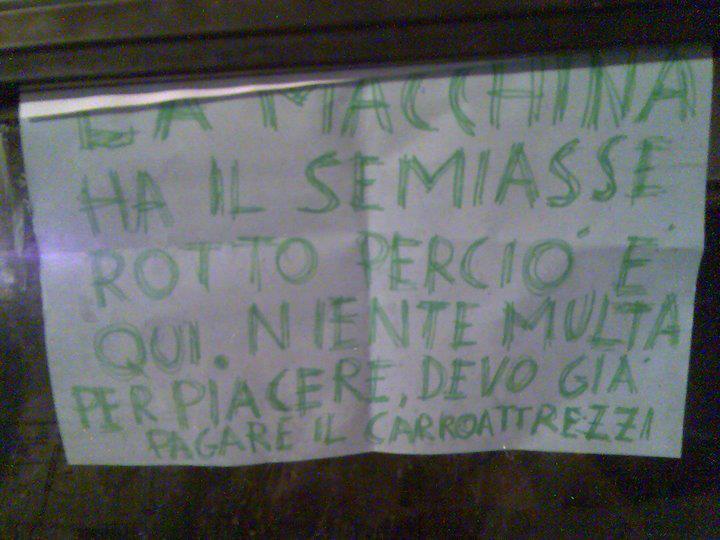 LA MACCHINA
HA IL SEMIASSE
ROTTO PERCIO' E'
QUI. NIENTE MULTA
PER PIACERE, DEVO GIA'
PAGARE IL CARROATTREZZI